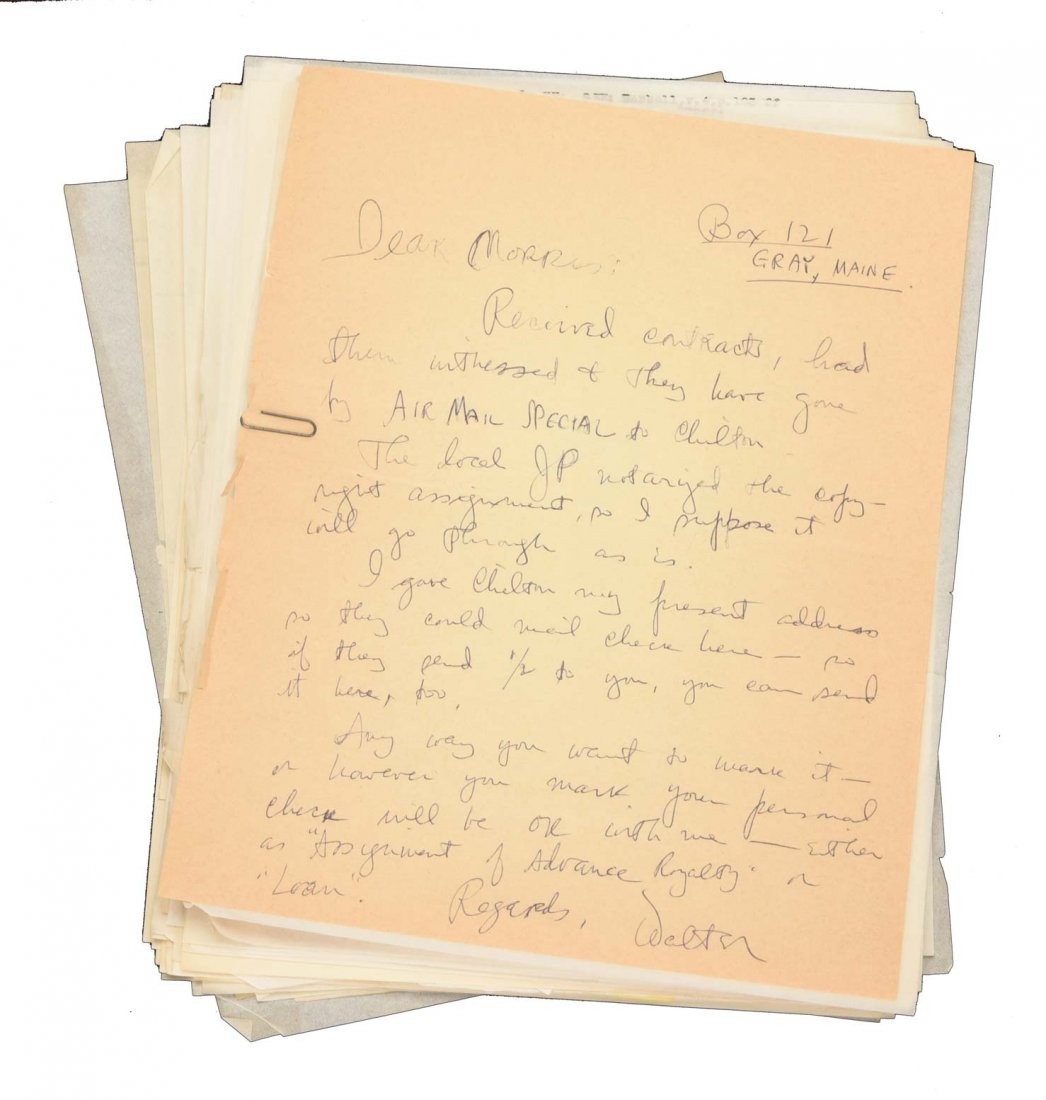 Box 121
GRAY, MAINE.
Dear Morris:
Received contracts, had
them witnessed & they have gone
by AIR MAIL SPECIAL to Chilton
The local JP notarized the copy-
right assignment, so I suppose it
will go through as is.
I gave Chilton my present address
so they could mail check here — so
if they send 1/2 to you, you can send
it here, too.
Any way you want to mark it —
or however you mark your personal
check will be OK with me — either
as "Assignment of Advance Royalty" or
"Loan".
Regards,
Walter